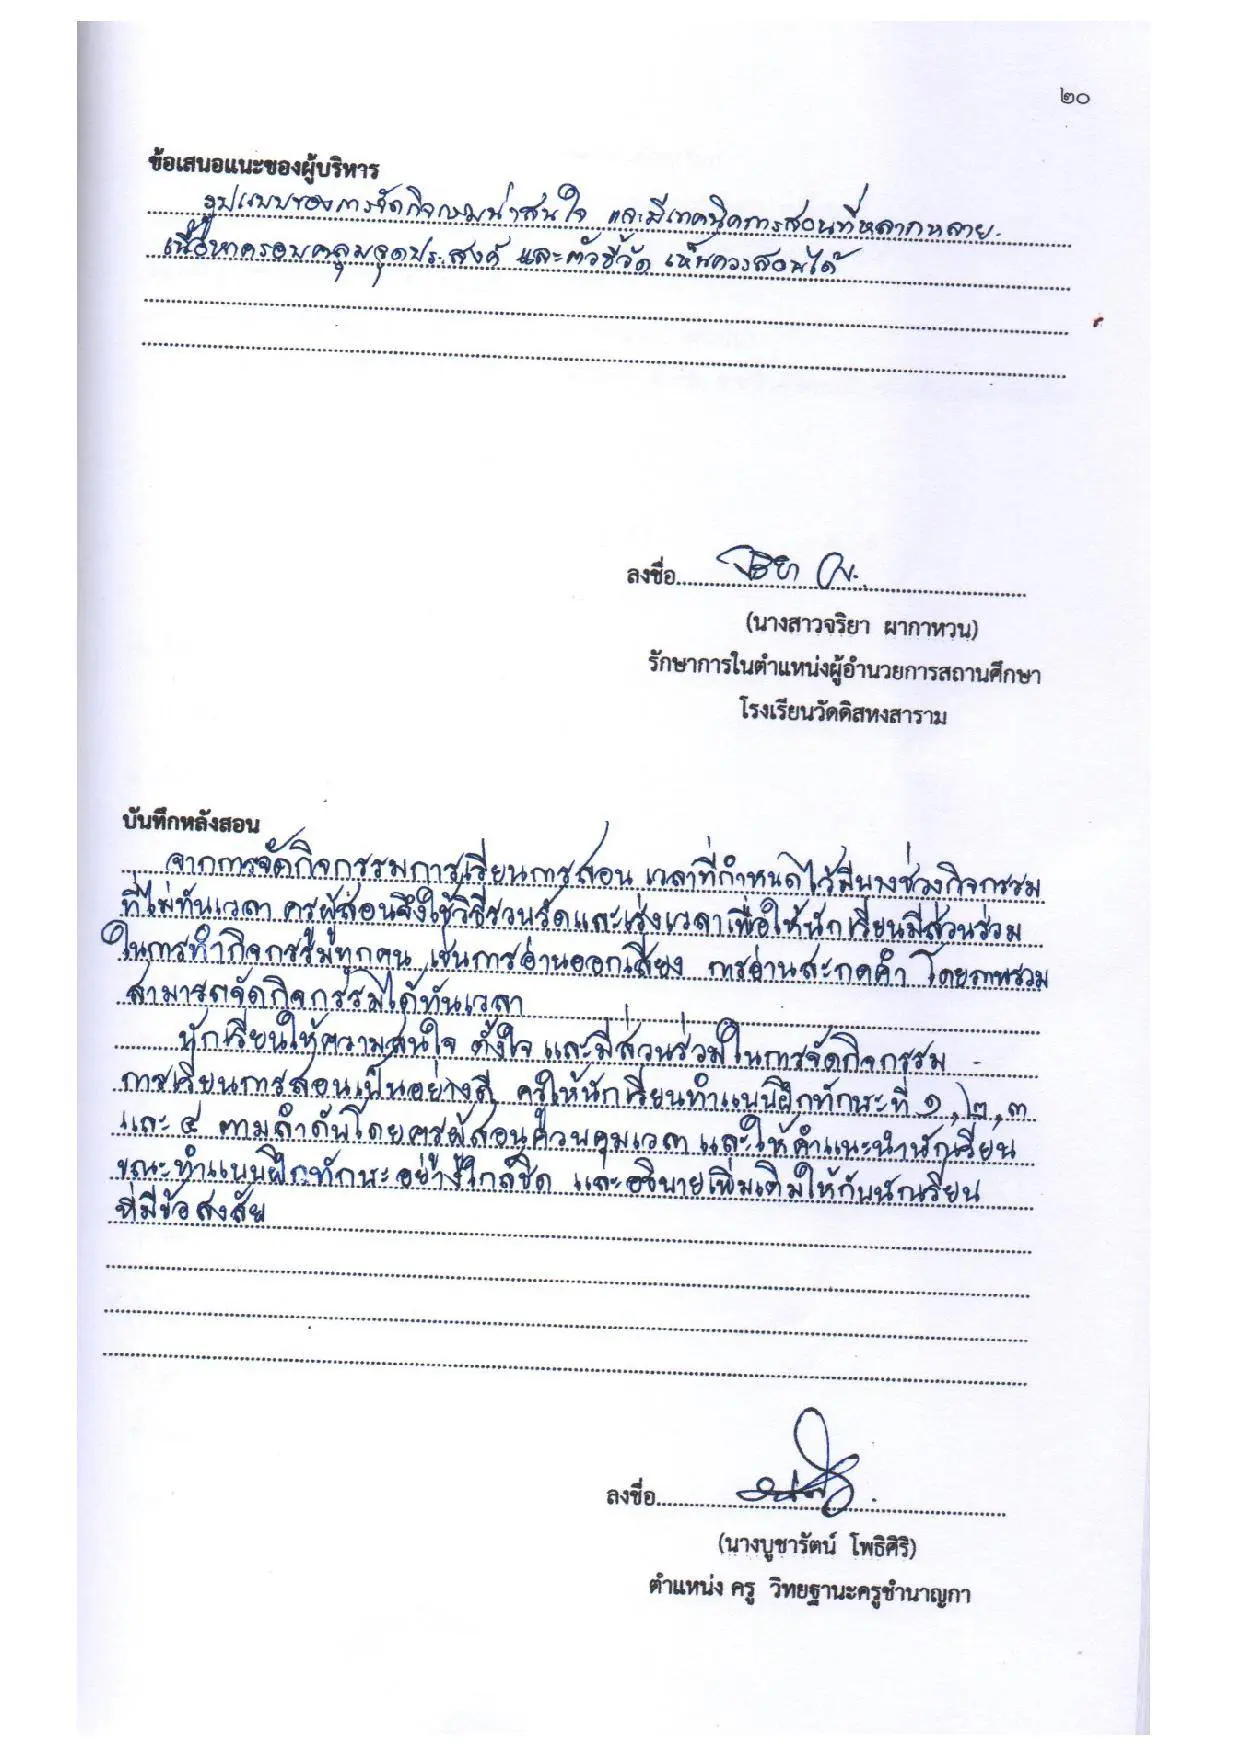 ๒๐
ข้อเสนอแนะของผู้บริหาร
รูปแบบของการจัดกิจกรรมน่าสนใจ และมีเทคนิคการสอนที่หลากหลาย
เนื้อหาครอบคลุมจุดประสงค์ และตัวชี้วัด เห็นควรสอนได้
ลงชื่อ
(นางสาวจริยา ผากาหวน)
รักษาการในตำแหน่งผู้อำนวยการสถานศึกษา
โรงเรียนวัดดิสหงสาราม
บันทึกหลังสอน
จากการจัดกิจกรรมการเรียนการสอน เวลาที่กำหนดไว้มีบางช่วงกิจกรรม
ที่ไม่ทันเวลา ครูผู้สอนจึงใช้วิธีรวบรัดและเร่งเวลาเพื่อให้นักเรียนมีส่วนร่วม
ในการทำกิจกรรมทุกคน เช่นการอ่านออกเสียง การอ่านสะกดคำ โดยภาพรวม
สามารถจัดกิจกรรมได้ทันเวลา
นักเรียนให้ความสนใจ ตั้งใจ และมีส่วนร่วมในการจัดกิจกรรม
การเรียนการสอนเป็นอย่างดี ครูให้นักเรียนทำแบบฝึกทักษะที่ ๑,๒,๓
และ ๔ ตามลำดับโดยครูผู้สอนควบคุมเวลา และให้คำแนะนำนักเรียน
ขณะทำแบบฝึกทักษะอย่างใกล้ชิด และอธิบายเพิ่มเติมให้กับนักเรียน
ที่มีข้อสงสัย
ลงชื่อ
(นางบูชารัตน์ โพธิศิริ)
ตำแหน่ง ครู วิทยฐานะครูชำนาญกา